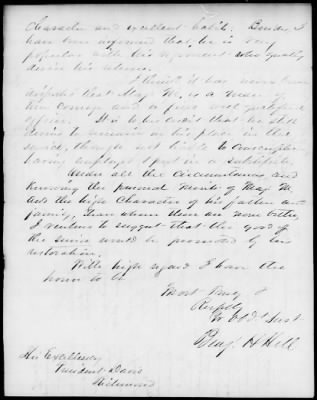 Character and excellent habits. Besides, I
have been informed that he is very
popular with his regiment who greatly
desire his return.
I think it has never been
disputed that Maj. M. is a man of
fine courage and a fine well qualified
officer. It is to his credit that he still
desires to remain in his place in the
service, though not liable to conscription
having employed & put in a substitute.
Under all the circumstances and
knowing the personal merits of Maj. M.
and the high character of his father and
family, than whom there are none better,
I venture to suggest that the good of
the service would be promoted by his
restoration.
With high regard I have the
honor to be
Most Truly &
Respfly
Yr Obt Svt
Benj. H Hill
His Excellency
President Davis
Richmond